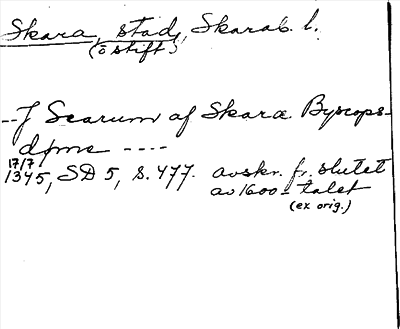 Skara, stad, Skarab. l.
(o stift)
--J Scarum af Skaræ Byscops-
döme ----
17/7
1345, SD 5, s. 477. avskr. fr. slutet
av 1600-talet
(ex orig.)